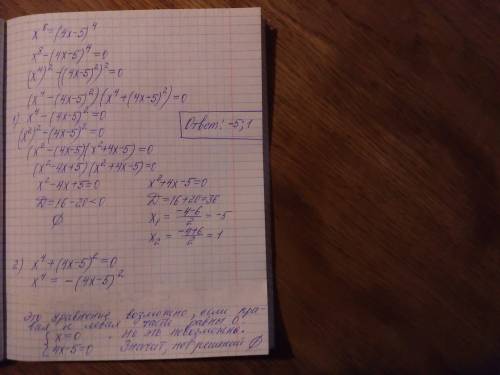 x⁸ = (4x-5)⁴
x⁸ - (4x-5)⁴ = 0
(x⁴)² - ((4x-5)²)² = 0
(x⁴ - (4x-5)²)(x⁴ + (4x-5)²) = 0
1) x⁴ - (4x-5)² = 0
(x²)² - (4x-5)² = 0
Ответ: -5; 1
(x² - (4x-5))(x² + 4x-5) = 0
(x² - 4x + 5)(x² + 4x - 5) = 0
x² - 4x + 5 = 0    x² + 4x - 5 = 0
D = 16 - 20 < 0    D = 16 + 20 = 36
∅    x₁ = (-4-6)/2 = -5
x₂ = (-4+6)/2 = 1
2) x⁴ + (4x-5)² = 0
x⁴ = -(4x-5)²
Это уравнение возможно, если пра-
вая и левая части равны 0.
{ x = 0    . Но это невозможно.
{ 4x-5 = 0    Значит, нет решений ∅